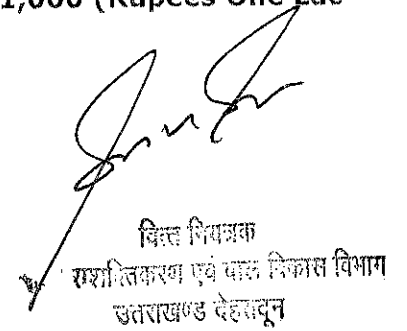 1,000 (Rupees One Lac
वित्त नियंत्रक
सशक्तिकरण एवं बाल विकास विभाग
उत्तराखण्ड देहरादून